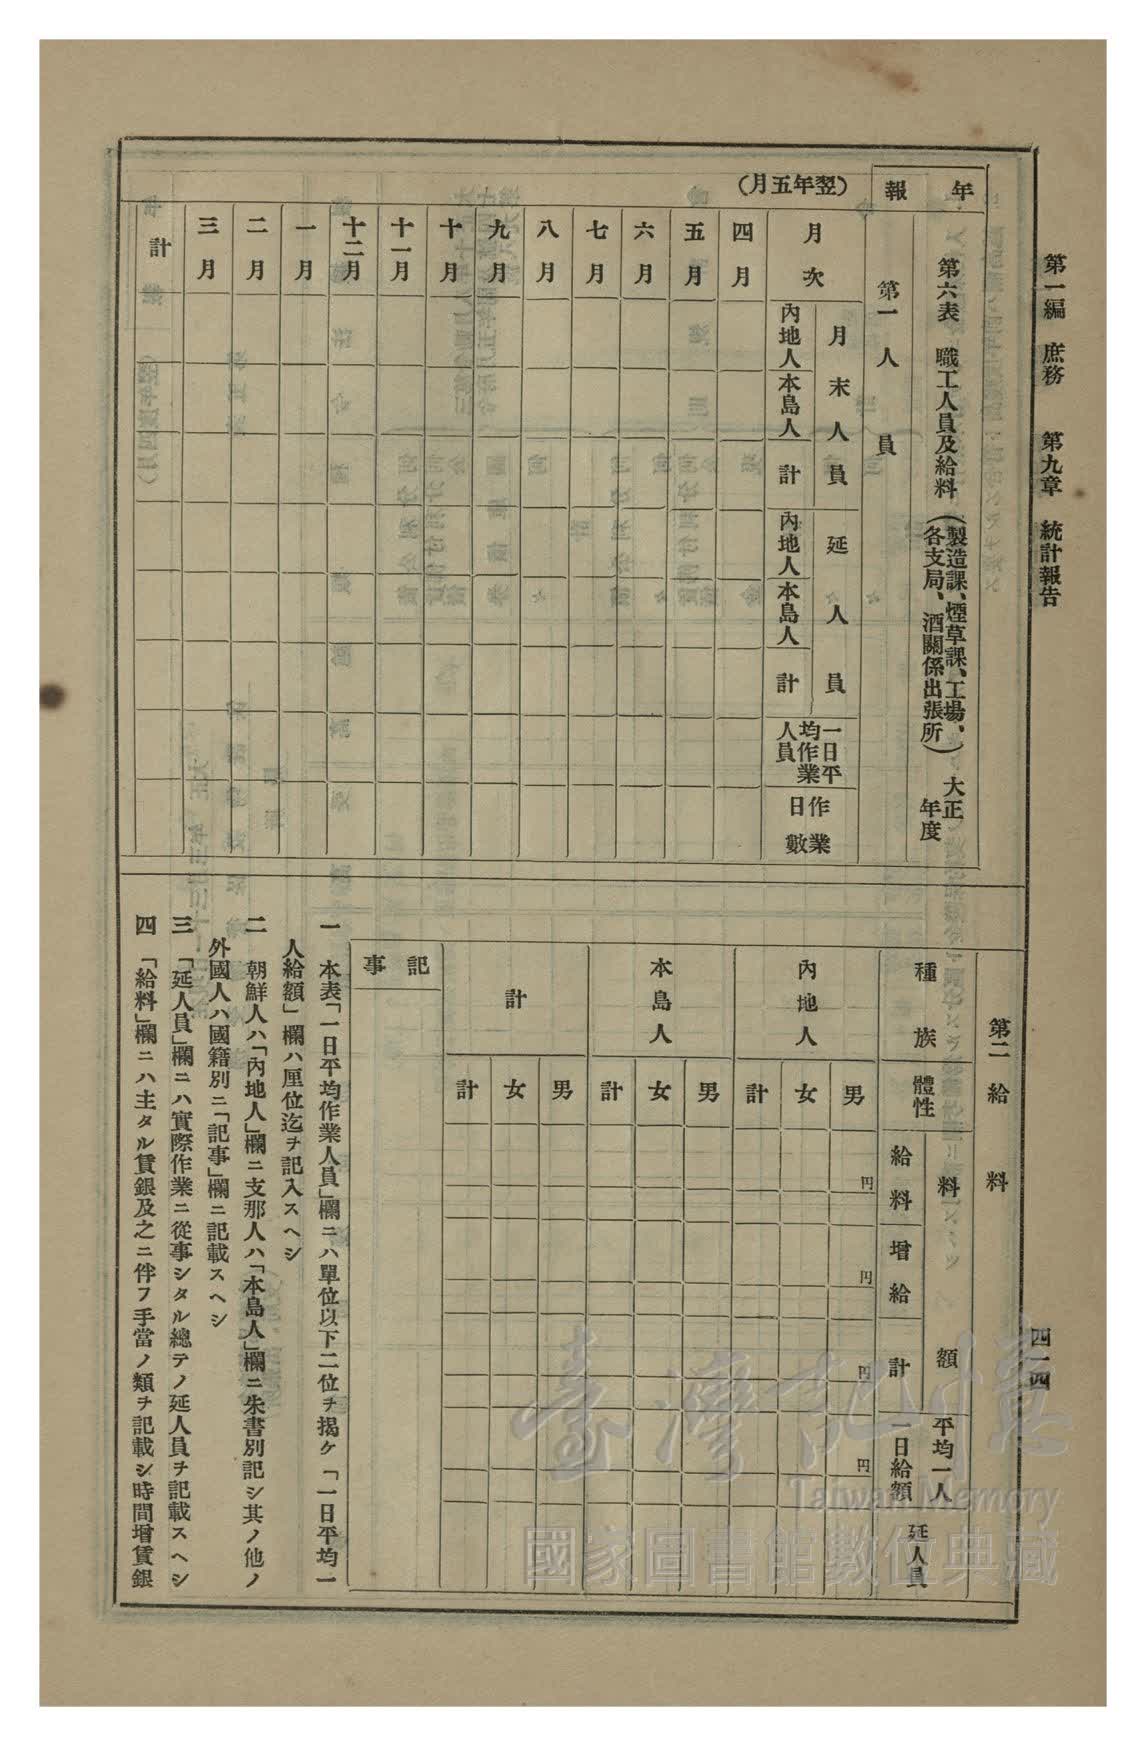 第一編 庶務 第九章 統計報告
四一四
年報
(翌年五月)
第六表 職工人員及給料(製造課、煙草課、工場、各支局、酒關係出張所)大正 年度
第一 人員
月次
月末人員
內地人
本島人
計
延人員
內地人
本島人
計
一日平均作業人員
作業日數
四月
五月
六月
七月
八月
九月
十月
十一月
十二月
一月
二月
三月
計
第二 給料
種族
體性
料額
給料
增給
計
平均一人一日給額
延人員
內地人
男
円
円
円
円
女
計
本島人
男
女
計
計
男
女
計
記事
一 本表「一日平均作業人員」欄ニハ單位以下二位ヲ揭ケ「一日平均一
人給額」欄ハ厘位迄ヲ記入スヘシ
二 朝鮮人ハ「內地人」欄ニ支那人ハ「本島人」欄ニ朱書別記シ其ノ他ノ
外國人ハ國籍別ニ「記事」欄ニ記載スヘシ
三 「延人員」欄ニハ實際作業ニ從事シタル總テノ延人員ヲ記載スヘシ
四 「給料」欄ニハ主タル賃銀及之ニ伴フ手當ノ類ヲ記載シ時間增賃銀
臺灣記憶
Taiwan Memory
國家圖書館數位典藏